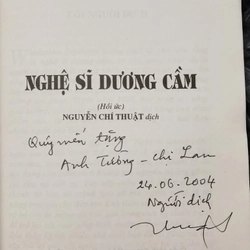 NGHỆ SĨ DƯƠNG CẦM
(Hồi ức)
NGUYỄN CHÍ THUẬT dịch
Quý mến tặng
Anh Tường - Chị Lan
24.06.2004
Người dịch